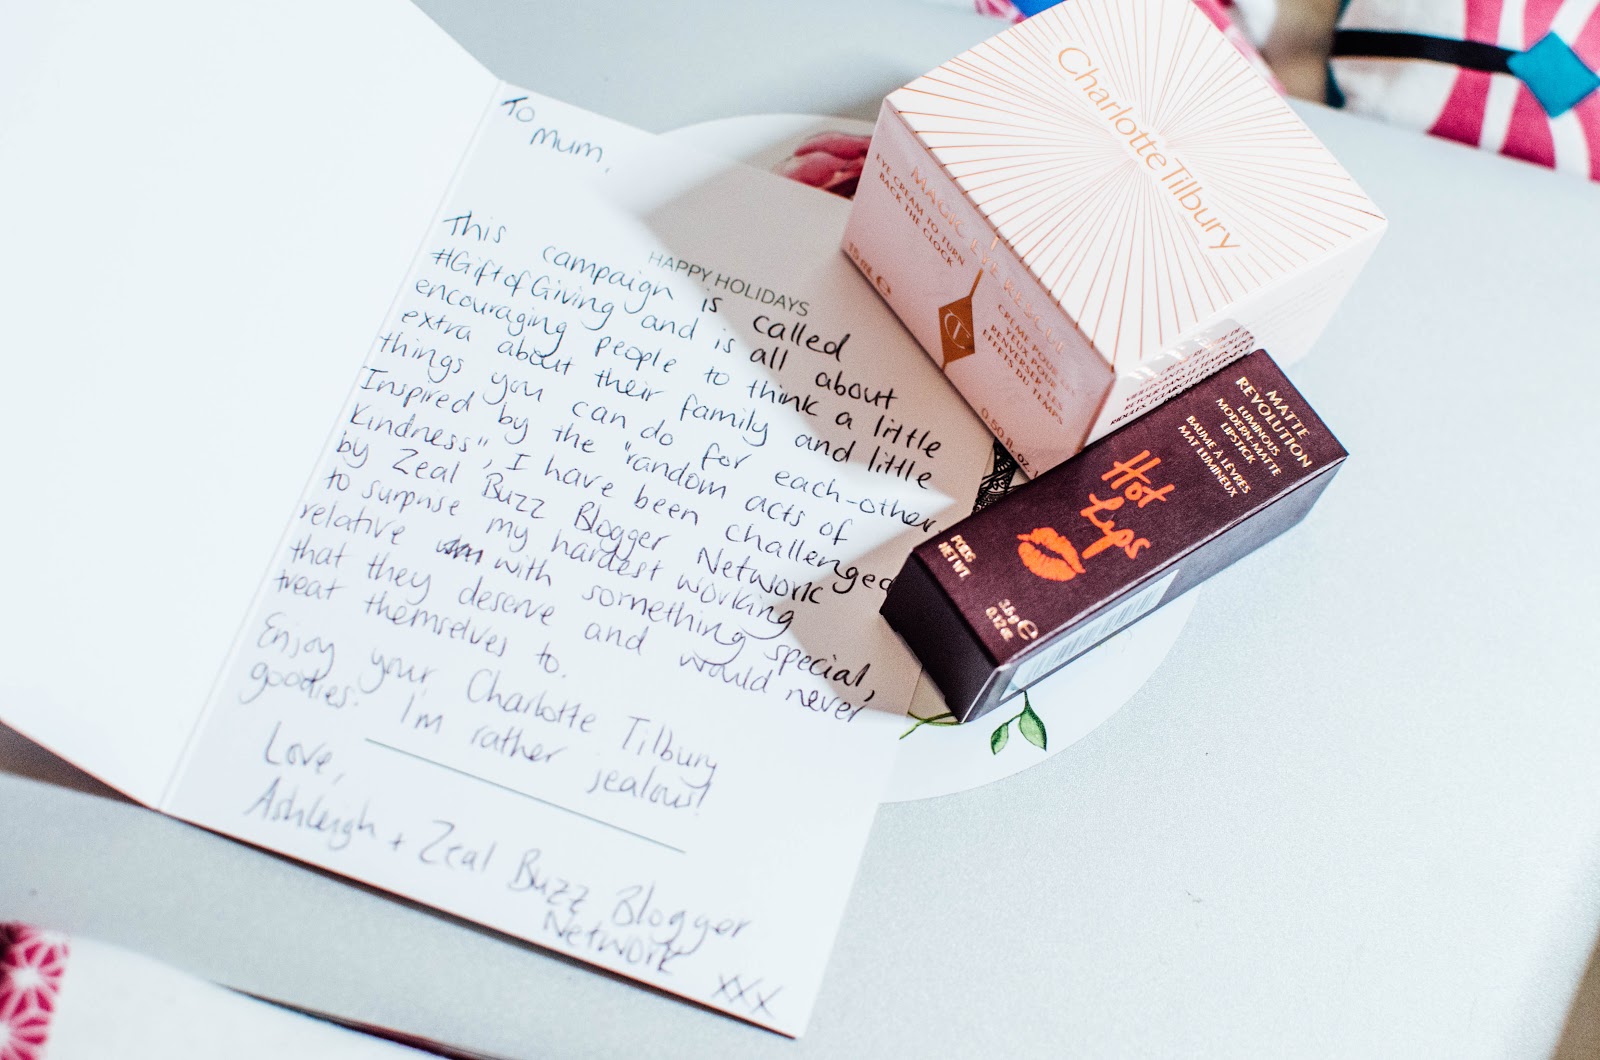 To
Mum,
HAPPY HOLIDAYS
This campaign is called
#GiftofGiving and is all about
encouraging people to think a little
extra about their family and little
things you can do for each-other.
Inspired by the "random acts of
Kindness", I have been challenged
by Zeal Buzz Blogger Network
to surprise my hardest working
relative with something special,
that they deserve and would never
treat themselves to.
Enjoy your Charlotte Tilbury
goodies. I'm rather jealous!
Love,
Ashleigh + Zeal Buzz Blogger
Network
xxx
Charlotte Tilbury
MAGIC EYE RESCUE
EYE CREAM TO TURN
BACK THE CLOCK
15 mL e
CT
CRÈME POUR LES
YEUX POUR
RENVERSER LES
EFFETS DU TEMPS
0.50 fl. oz.
MATTE
REVOLUTION
LUMINOUS
MODERN-MATTE
LIPSTICK
BAUME À LÈVRES
MAT LUMINEUX
Hot
Lips
POIDS
NET WT.
3.5g e
0.12 oz.